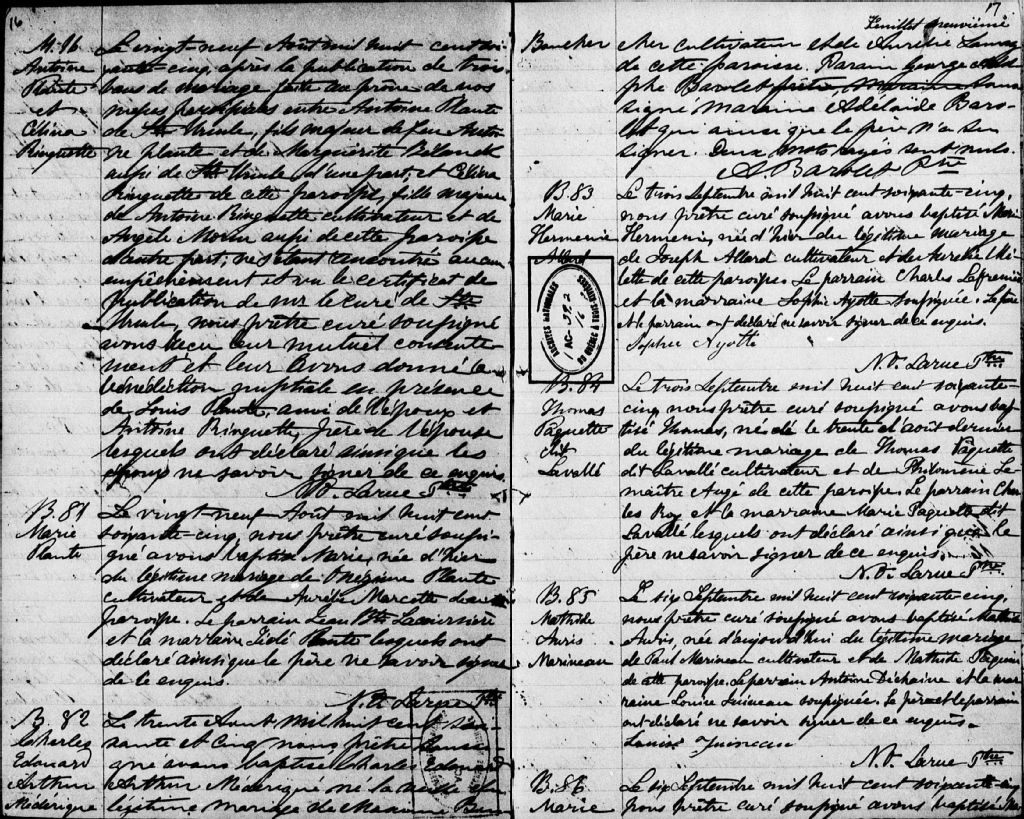 16
M. 16
Antoine
Plante
et
Célina
Ringuette
Le vingt-neuf Août mil huit cent soi-
xante-cinq, après la publication de trois
bans de mariage faite au prône de nos
messes paroissiales entre Antoine Plante
de Ste Ursule, fils majeur de feu Antoi-
ne Plante et de Marguerite
aussi de Ste Ursule d'une part; et Célina
Ringuette de cette paroisse, fille majeure
de Antoine Ringuette cultivateur et de
Angèle Morin aussi de cette paroisse
d'autre part; ne s'étant rencontré aucun
empêchement et vu le certificat de
publication de mr le curé de Ste
Ursule, nous prêtre curé soussigné
avons reçu leur mutuel consente-
ment et leur avons donné la
bénédiction nuptiale en présence
de Louis Plante, ami de l'époux et
Antoine Ringuette, père de l'épouse
lesquels ont déclaré ainsi que les
époux ne savoir signer de ce enquis.
N. D. Larue Ptre
B. 81
Marie
Plante
Le vingt-neuf Août mil huit cent
soixante-cinq, nous prêtre curé soussi-
gné avons baptisé Marie, née d'hier
du légitime mariage de Onezime Plante
cultivateur et de Aurélie Marcotte de cette
paroisse. Le parrain Jean Bte
et la marraine Plante lesquels ont
déclaré ainsi que le père ne savoir signer
de ce enquis.
N. D. Larue Ptre
B. 82
Charles
Edouard
Arthur
Médérique
Le trente Aout, mil huit cent soi-
xante et cinq nous prêtre soussi-
gné avons baptisé Charles Edouard
Arthur Médérique né la veille du
légitime mariage de
17
Feuillet neuvième
Boucher
cher cultivateur et de Aurélie
de cette paroisse. Parain George
phe Barolet prêtre, marraine sous
signé maraine Adélaide Baro-
let qui ainsi que le père n'a su
signer. Deux mots rayés sont nuls.
A. Barolet Ptre
B. 83
Marie
Hermenie
Allard
Le trois Septembre mil huit cent soixante-cinq,
nous prêtre curé soussigné avons baptisé Marie
Hermenie, née d'hier du légitime mariage
de Joseph Allard cultivateur et de
de cette paroisse. Le parrain Charles Lafrenière
et la marraine Sophie Ayotte soussignée. Le père
et le parrain ont déclaré ne savoir signer de ce enquis.
Sophie Ayotte
N. D. Larue Ptre
ARCHIVES NATIONALES
1 AC- 392
16
DU QUÉBEC À TROIS-RIVIÈRES
B. 84
Thomas
Paquette
dit
Lavallé
Le trois Septembre mil huit cent soixante-
cinq nous prêtre curé soussigné avons bap-
tisé Thomas, né le trente et août dernier
du légitime mariage de Thomas Paquette
dit Lavallé cultivateur et de Philomène Le-
maître Augé de cette paroisse. Le parrain Char
les Roy et la marraine Marie Paquette dit
Lavallé lesquels ont déclaré ainsi que le
père ne savoir signer de ce enquis.
N. D. Larue Ptre
B. 85
Mathilde
Auris
Marineau
Le six Septembre mil huit cent soixante-cinq,
nous prêtre curé soussigné avons baptisé Mathilde
Auris, née d'aujourd'hui du légitime mariage
de Paul Marineau cultivateur et de Mathilde Paquin
de cette paroisse. Le parrain Antoine Dechaine et la mar
raine Louise Juineau soussignée. Le père et le parrain
ont déclaré ne savoir signer de ce enquis.
Louise Juineau
N. D. Larue Ptre
B. 86
Marie
Le six Septembre mil huit cent soixante-cinq
nous prêtre curé soussigné avons baptisé